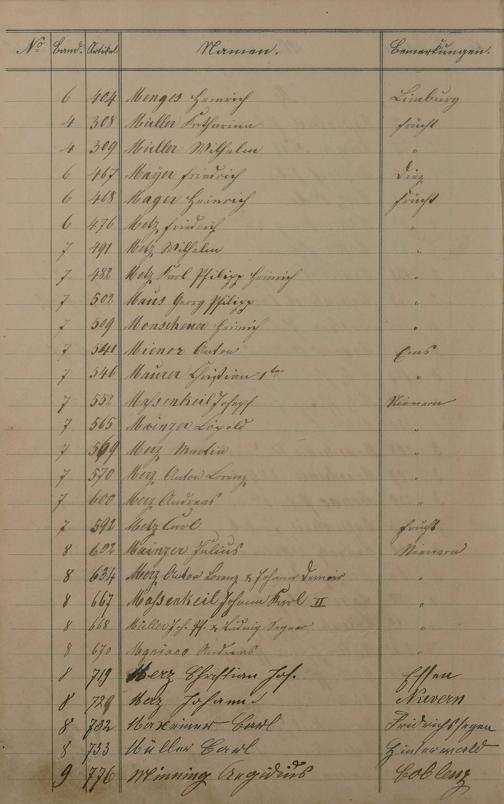 No Band. Artikel Namen. Bemerkungen.
6 404 Menges Heinrich Limburg
4 308 Müller Katharina Frücht
4 309 Müller Wilhelm "
6 467 Mayer Friedrich Diez
6 468 Mager Heinrich Frücht
6 476 Metz Friedrich "
7 491 Metz Wilhelm "
7 482 Metz Karl Philipp Heinrich "
7 502 Maus Georg Philipp "
7 509 Heinrich "
7 541 Anton Ems
7 546 Maurer Christian 1ter "
7 552 Massenkeil Joseph Nievern
7 565 Mainzer Leopold "
7 569 Merz Martin "
7 570 Merz Anton Lorenz "
7 600 Merz Andreas "
7 592 Metz Carl Frücht
8 602 Mainzer Julius Nievern
8 634 Merz Anton Lorenz & Johann "
8 667 Massenkeil Johann Karl II "
8 668 Müller Joh. Ph. & Ludwig "
8 670 Andreas "
8 719 Merz Christian Jos. Essen
8 729 Merz Johann Nievern
8 732 Maxeiner Carl Fridrichssegen
8 733 Müller Carl Hinterwald
9 776 Minning Aegidius Coblenz